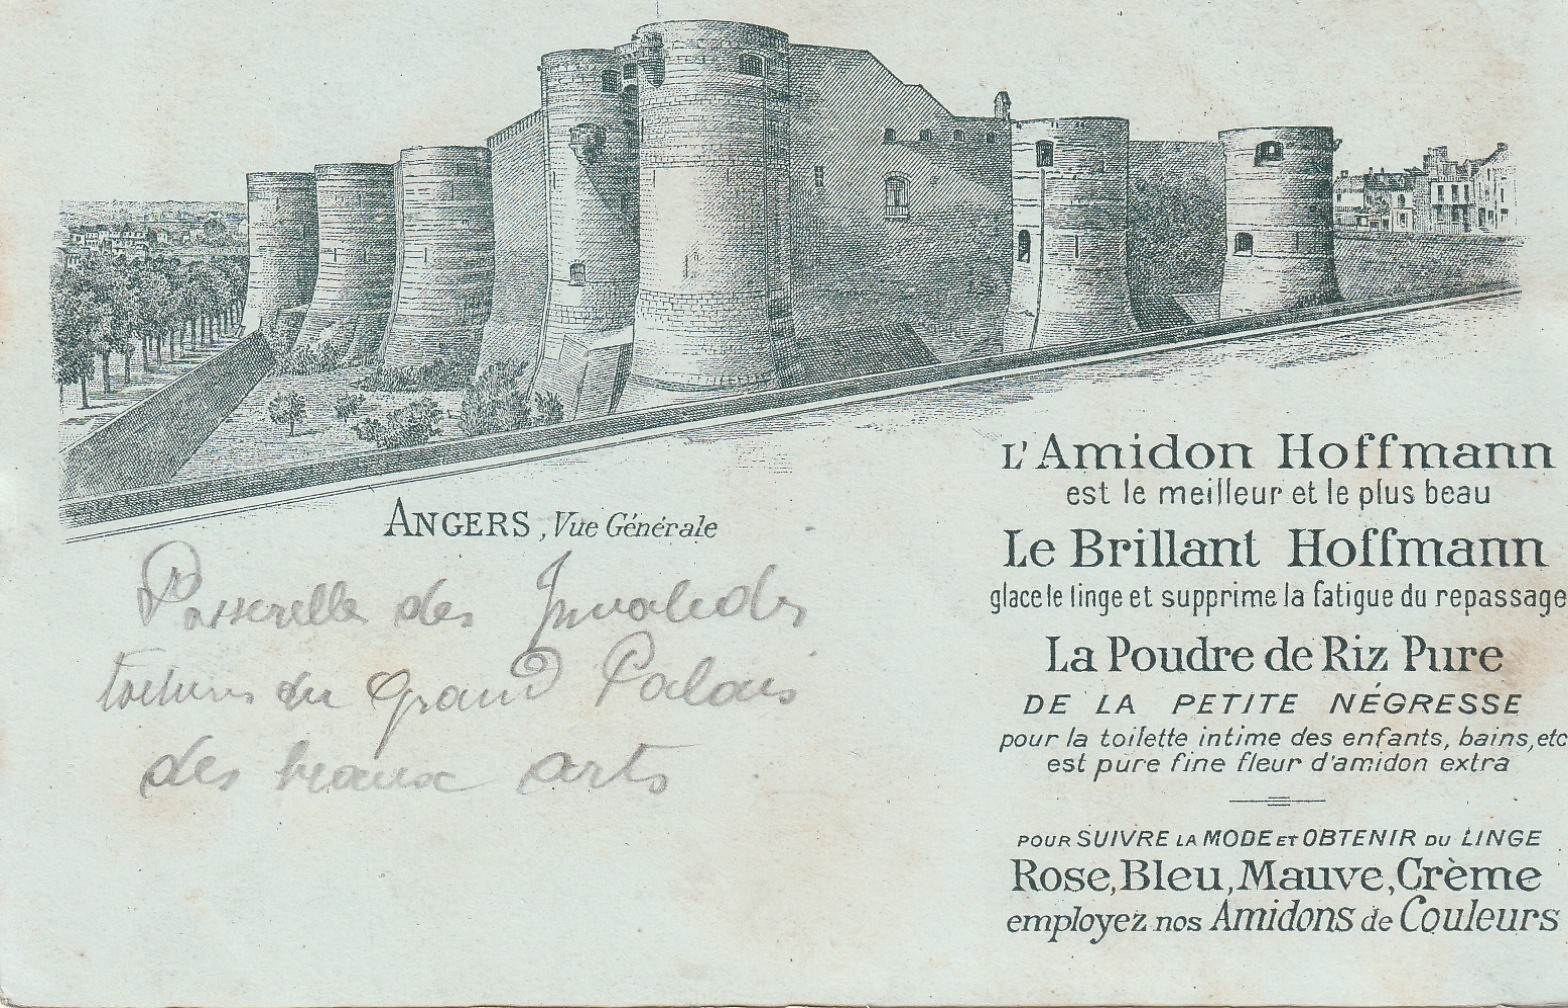 ANGERS, Vue Générale
Passerelle des Invalides
toitures du grand Palais
des beaux arts
L'Amidon Hoffmann
est le meilleur et le plus beau
Le Brillant Hoffmann
glace le linge et supprime la fatigue du repassage
La Poudre de Riz Pure
DE LA PETITE NÉGRESSE
pour la toilette intime des enfants, bains, etc
est pure fine fleur d'amidon extra
POUR SUIVRE LA MODE ET OBTENIR DU LINGE
Rose, Bleu, Mauve, Crème
employez nos Amidons de Couleurs